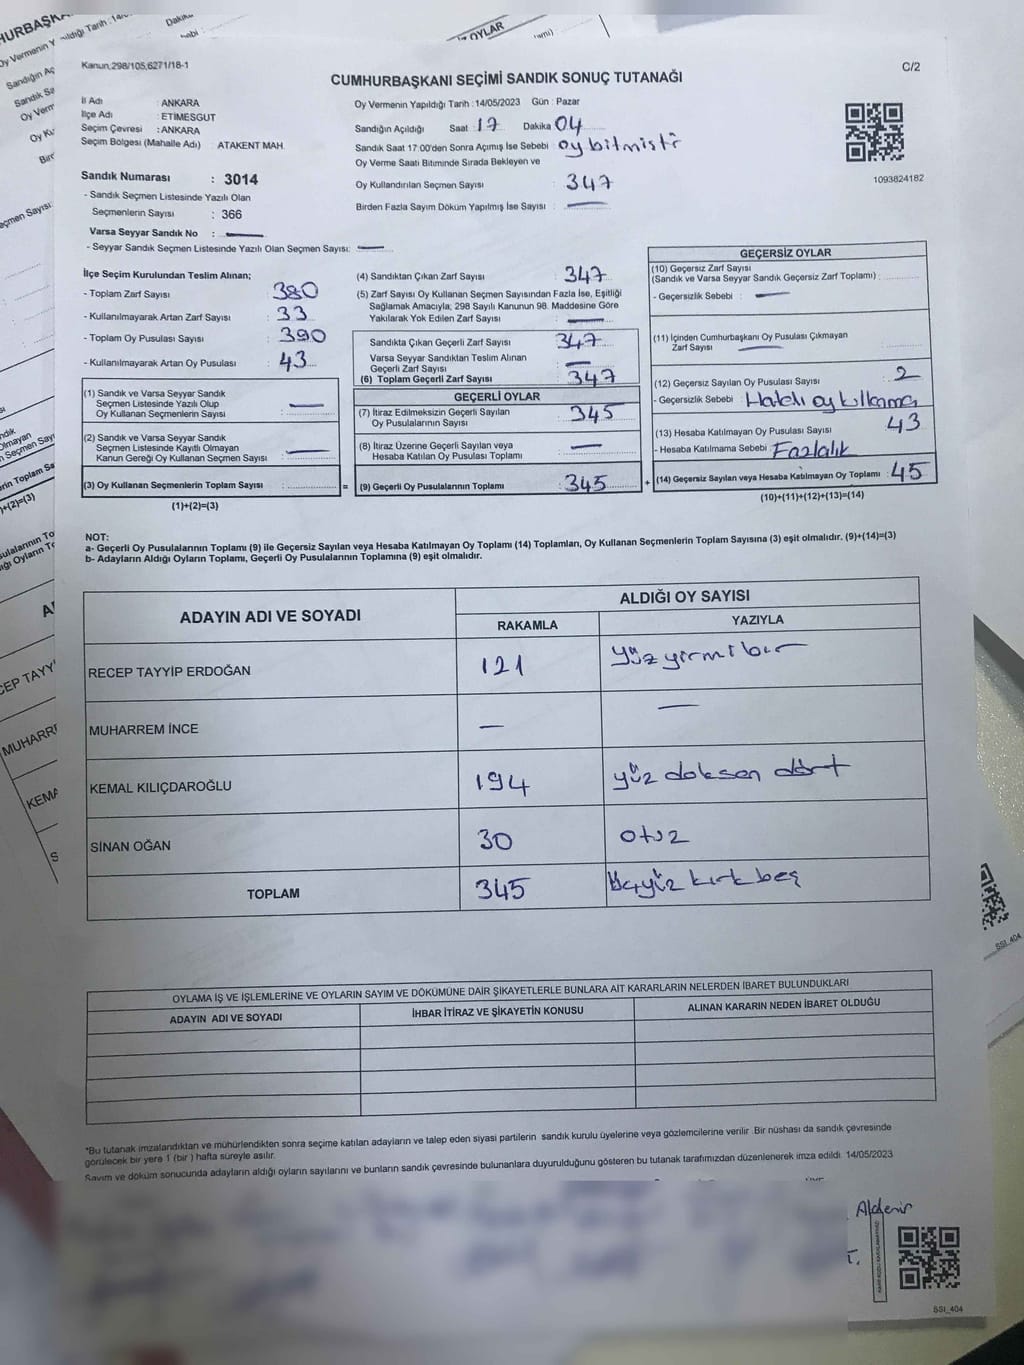 Kanun;298/105,6271/18-1
C/2
CUMHURBAŞKANI SEÇİMİ SANDIK SONUÇ TUTANAĞI
İl Adı : ANKARA
İlçe Adı : ETİMESGUT
Seçim Çevresi : ANKARA
Seçim Bölgesi (Mahalle Adı) : ATAKENT MAH.
Oy Vermenin Yapıldığı Tarih : 14/05/2023 Gün : Pazar
Sandığın Açıldığı Saat : 17 Dakika 04
Sandık Saat 17:00'den Sonra Açımış İse Sebebi : oy bitmişti
Oy Verme Saati Bitiminde Sırada Bekleyen ve
Oy Kullandırılan Seçmen Sayısı : 347
Birden Fazla Sayım Döküm Yapılmış İse Sayısı : —
1093824182
Sandık Numarası : 3014
- Sandık Seçmen Listesinde Yazılı Olan
Seçmenlerin Sayısı : 366
Varsa Seyyar Sandık No : —
- Seyyar Sandık Seçmen Listesinde Yazılı Olan Seçmen Sayısı: —
İlçe Seçim Kurulundan Teslim Alınan;
- Toplam Zarf Sayısı : 380
- Kullanılmayarak Artan Zarf Sayısı : 33
- Toplam Oy Pusulası Sayısı : 390
- Kullanılmayarak Artan Oy Pusulası : 43
(1) Sandık ve Varsa Seyyar Sandık
Seçmen Listesinde Yazılı Olup
Oy Kullanan Seçmenlerin Sayısı : —
(2) Sandık ve Varsa Seyyar Sandık
Seçmen Listesinde Kayıtlı Olmayan
Kanun Gereği Oy Kullanan Seçmen Sayısı : —
(3) Oy Kullanan Seçmenlerin Toplam Sayısı :
(1)+(2)=(3)
(4) Sandıktan Çıkan Zarf Sayısı : 347
(5) Zarf Sayısı Oy Kullanan Seçmen Sayısından Fazla İse, Eşitliği
Sağlamak Amacıyla; 298 Sayılı Kanunun 98. Maddesine Göre
Yakılarak Yok Edilen Zarf Sayısı : —
Sandıkta Çıkan Geçerli Zarf Sayısı : 347
Varsa Seyyar Sandıktan Teslim Alınan
Geçerli Zarf Sayısı : —
(6) Toplam Geçerli Zarf Sayısı : 347
GEÇERLİ OYLAR
(7) İtiraz Edilmeksizin Geçerli Sayılan
Oy Pusulalarının Sayısı : 345
(8) İtiraz Üzerine Geçerli Sayılan veya
Hesaba Katılan Oy Pusulası Toplamı : —
= (9) Geçerli Oy Pusulalarının Toplamı : 345
GEÇERSİZ OYLAR
(10) Geçersiz Zarf Sayısı
(Sandık ve Varsa Seyyar Sandık Geçersiz Zarf Toplamı) :
- Geçersizlik Sebebi : —
(11) İçinden Cumhurbaşkanı Oy Pusulası Çıkmayan
Zarf Sayısı —
(12) Geçersiz Sayılan Oy Pusulası Sayısı : 2
- Geçersizlik Sebebi : Hatalı oy kullanma
(13) Hesaba Katılmayan Oy Pusulası Sayısı : 43
- Hesaba Katılmama Sebebi : Fazlalık
+ (14) Geçersiz Sayılan veya Hesaba Katılmayan Oy Toplamı : 45
(10)+(11)+(12)+(13)=(14)
NOT:
a- Geçerli Oy Pusulalarının Toplamı (9) ile Geçersiz Sayılan veya Hesaba Katılmayan Oy Toplamı (14) Toplamları, Oy Kullanan Seçmenlerin Toplam Sayısına (3) eşit olmalıdır. (9)+(14)=(3)
b- Adayların Aldığı Oyların Toplamı, Geçerli Oy Pusulalarının Toplamına (9) eşit olmalıdır.
ADAYIN ADI VE SOYADI
ALDIĞI OY SAYISI
RAKAMLA YAZIYLA
RECEP TAYYİP ERDOĞAN 121 yüz yirmi bir
MUHARREM İNCE — —
KEMAL KILIÇDAROĞLU 194 yüz doksan dört
SİNAN OĞAN 30 otuz
TOPLAM 345 üçyüz kırk beş
OYLAMA İŞ VE İŞLEMLERİNE VE OYLARIN SAYIM VE DÖKÜMÜNE DAİR ŞİKAYETLERLE BUNLARA AİT KARARLARIN NELERDEN İBARET BULUNDUKLARI
ADAYIN ADI VE SOYADI
İHBAR İTİRAZ VE ŞİKAYETİN KONUSU
ALINAN KARARIN NEDEN İBARET OLDUĞU
*Bu tutanak imzalandıktan ve mühürlendikten sonra seçime katılan adayların ve talep eden siyasi partilerin sandık kurulu üyelerine veya gözlemcilerine verilir. Bir nüshası da sandık çevresinde
görülecek bir yere 1 (bir ) hafta süreyle asılır.
Sayım ve döküm sonucunda adayların aldığı oyların sayılarını ve bunların sandık çevresinde bulunanlara duyurulduğunu gösteren bu tutanak tarafımızdan düzenlenerek imza edildi. 14/05/2023
SSI_404
SSI_404